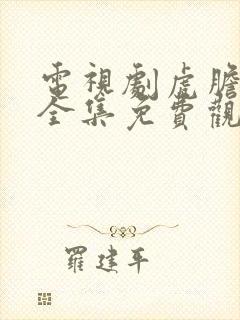 電視劇虎膽
全集免費觀
羅建平